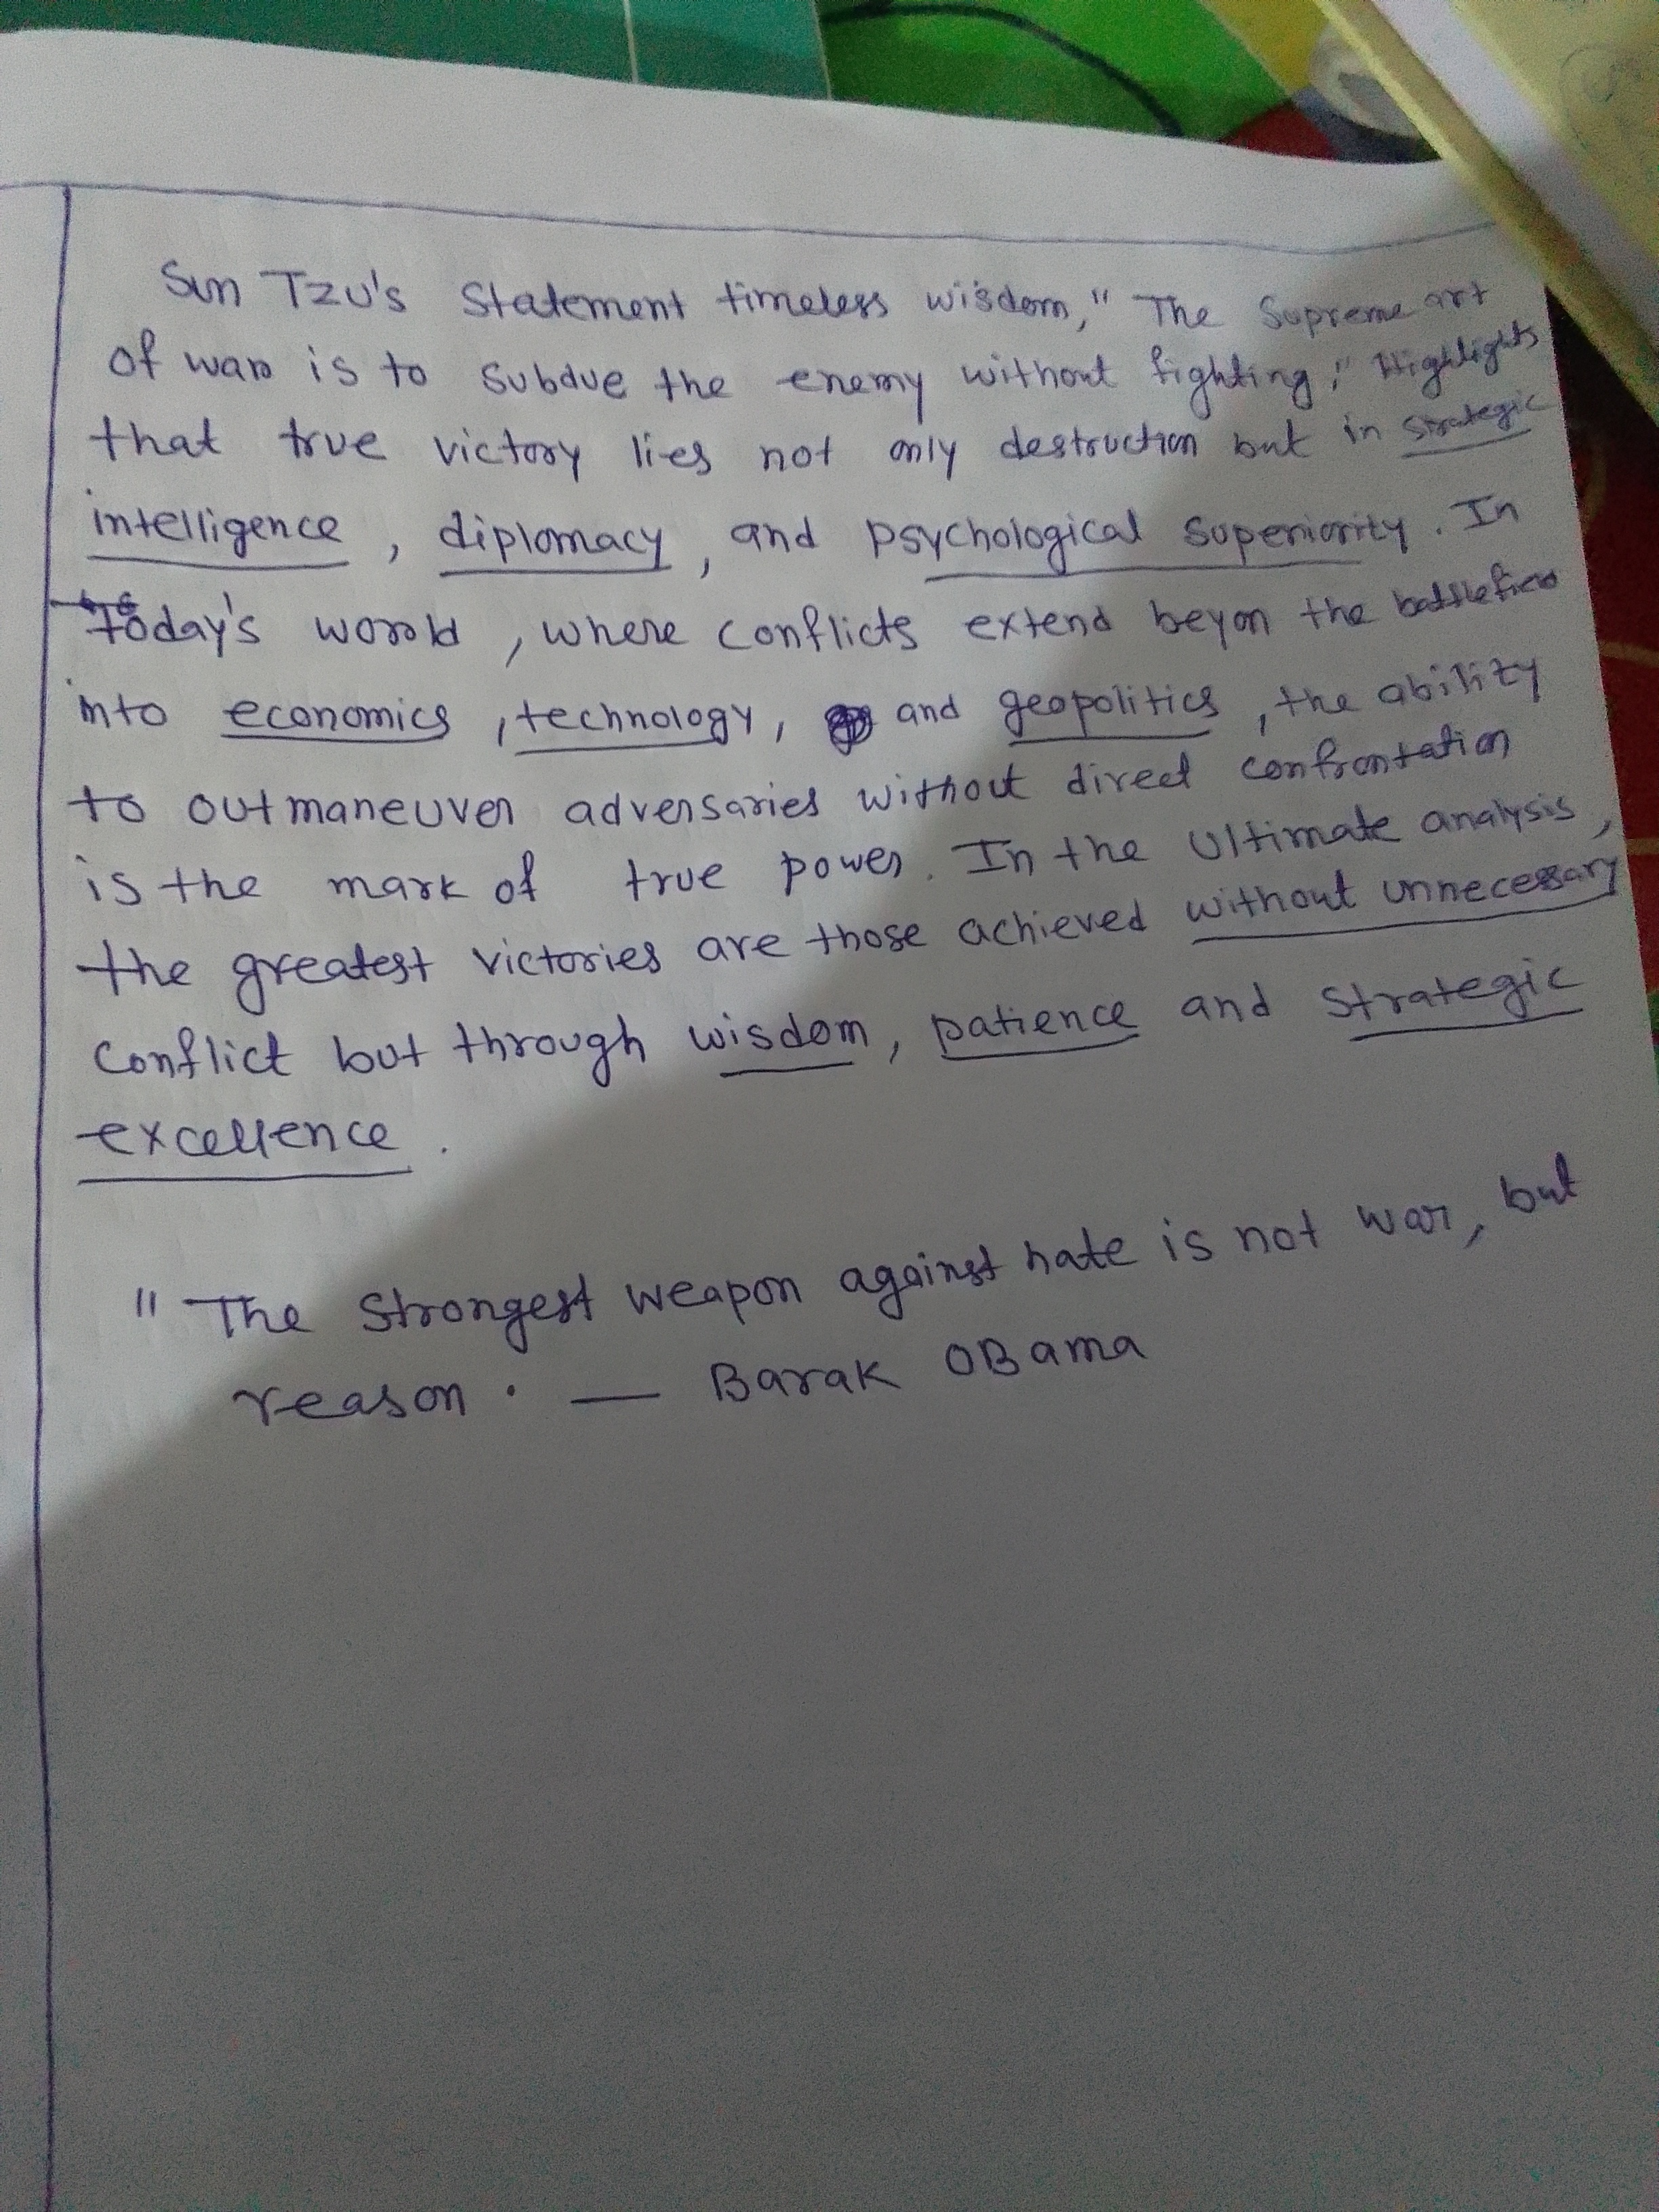 Sun Tzu's Statement timeless wisdom," The Supreme art
of war is to subdue the enemy without fighting," Highlights
that true victory lies not only destruction but in strategic
intelligence, diplomacy, and psychological superiority. In
today's world, where conflicts extend beyon the battlefield
into economics, technology, and geopolitics, the ability
to outmaneuver adversaries without direct confrontation
is the mark of true power. In the ultimate analysis,
the greatest victories are those achieved without unnecessary
conflict but through wisdom, patience and strategic
excellence.
" The strongest weapon against hate is not war, but
reason. — Barak OBama